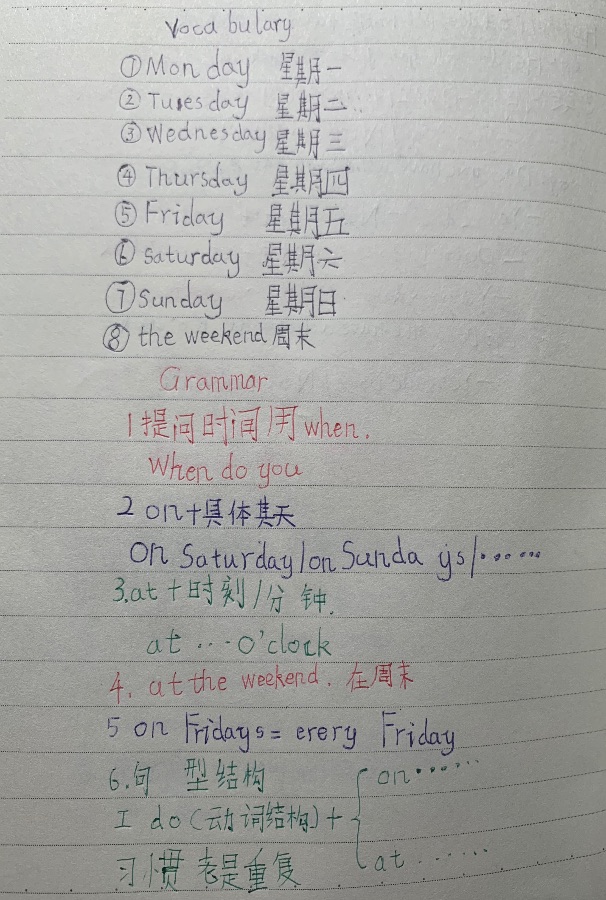 Vocabulary
①Monday 星期一
②Tuesday 星期二
③Wednesday 星期三
④Thursday 星期四
⑤Friday 星期五
⑥Saturday 星期六
⑦Sunday 星期日
⑧the weekend 周末
Grammar
1提问时间用when.
When do you
2 on+具体某天
on Saturday/on Sundays/······
3.at+时刻/分钟.
at ··· o'clock
4. at the weekend. 在周末
5 on Fridays = erery Friday
6.句型结构
on······
I do(动词结构)+{
at ······
习惯 老是重复